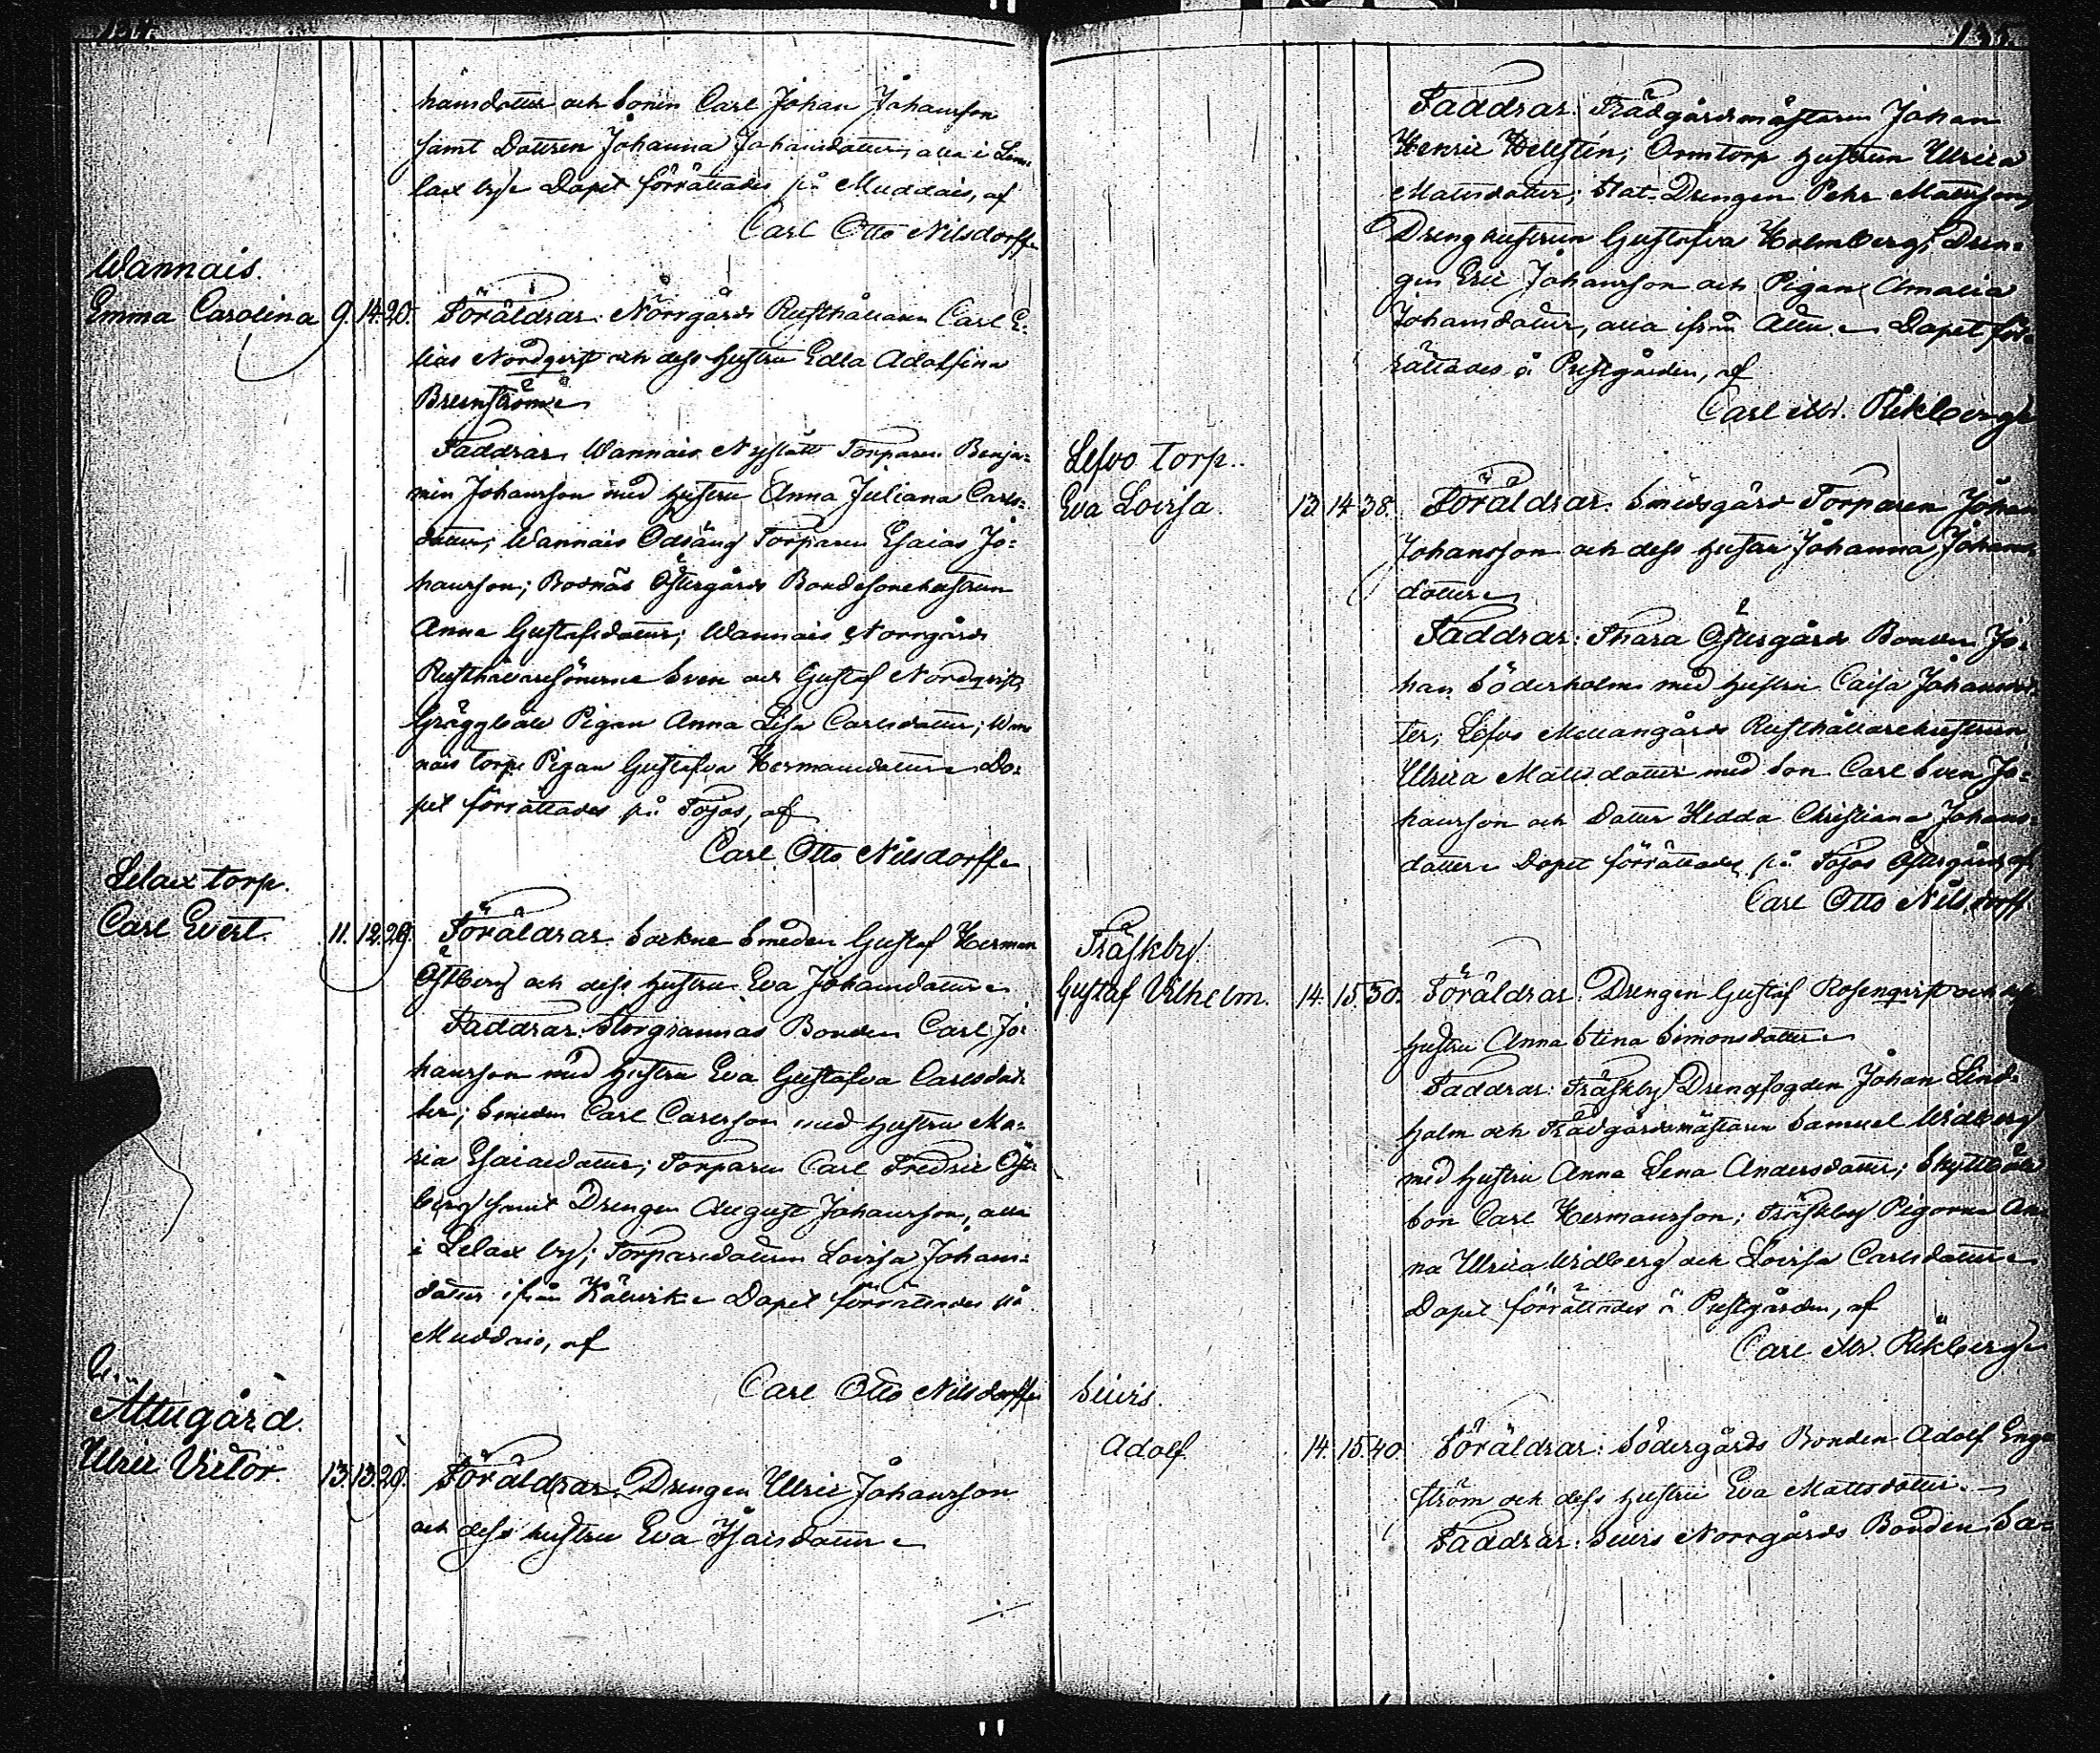 134.
hansdotter och Sonen Carl Johan Johansson
samt Dottren Johanna Johansdotter, alla i Lem-
lax by. Dopet förrättades på Muddais, af
Carl Otto Nilsdorff.
Wannais.
Emma Carolina 9. 14. 20. Föräldrar: Norrgårds Rusthållaren Carl E-
lias Nordqvist och dess hustru Edla Adolfina
Brernström.
Faddrar: Wannais Nystätt Torparen Benja-
min Johansson med hustru Anna Juliana Carls-
dotter; Wannais Odsäng Torparen Esaias Jo-
hansson; Bodnäs Östergårds Bondesonehustrun
Anna Gustafsdotter; Wannais Norrgårds
Rusthållaresönerne Sven och Gustaf Nordqvist;
Gräggböle Pigan Anna Lisa Carlsdotter; Wan-
nais torp Pigan Gustafva Hermansdotter. Do-
pet förrättades på Tojos, af
Carl Otto Nilsdorff.
Lelax torp.
Carl Evert. 11. 12. 29. Föräldrar: Sockne Smeden Gustaf Herman
Östberg och dess hustru Eva Johansdotter.
Faddrar: Storgrannas Bonden Carl Jo-
hansson med hustru Eva Gustafva Carlsdot-
ter; Smeden Carl Carlsson med hustru Ma-
ria Esaiaedotter; Torparen Carl Fredric Öst-
berg samt Drengen August Johansson, alla
i Lelax by; Torparedottren Lovisa Johans-
dotter ifrån Kälwik. Dopet förrättades på
Muddais, af
Carl Otto Nilsdorff.
Attugård.
Ulric Victor 13. 13. 29. Föräldrar: Drengen Ulric Johansson
och dess hustru Eva Isaisdotter.
135.
Faddrar: Trädgårdsmästaren Johan
Henric Hellstén; Ormtorp hustrun Ulrica
Matsdotter; Stat-Drengen Pehr Mattsson,
Drenghustrun Gustafva Holmberg, Dren-
gen Eric Johansson och Pigan Amalia
Johansdotter, alla ifrån Attu. Dopet för-
rättades å Prestgården, af
Carl M. Rekberg.
Lefvo torp.
Eva Lovisa. 13. 14. 38. Föräldrar: Smedsgård Torparen Johan
Johansson och dess hustru Johanna Johans-
dotter.
Faddrar: Thara Östergårds Bonden Jo-
han Söderholm med hustru Caisa Johansdot-
ter; Lofvo Mellangårds Rusthållarehustrun
Ulrica Matsdotter med Son Carl Sven Jo-
hansson och Dotter Hedda Christiana Johans-
dotter. Dopet förrättades på Tojos Östergård, af
Carl Otto Nilsdorff.
Träskby.
Gustaf Vilhelm. 14. 15. 30. Föräldrar: Drengen Gustaf Rosenqvist och dess
hustru Anna Stina Simonsdotter.
Faddrar: Träskby Drengfogden Johan Lind-
holm och Trädgårdsmästaren Samuel Widberg
med hustru Anna Lena Andersdotter; Skyttböle
Son Carl Hermansson; Träskby Pigorne An-
na Ulrica Widberg och Lovisa Carlsdotter.
Dopet förrättades å Prestgården, af
Carl M. Rekberg.
Seivis.
Adolf. 14. 15. 40. Föräldrar: Södergårds Bonden Adolf Eng-
ström och dess hustru Eva Mattsdotter.
Faddrar: Seivis Norrgårds Bonden Sa-